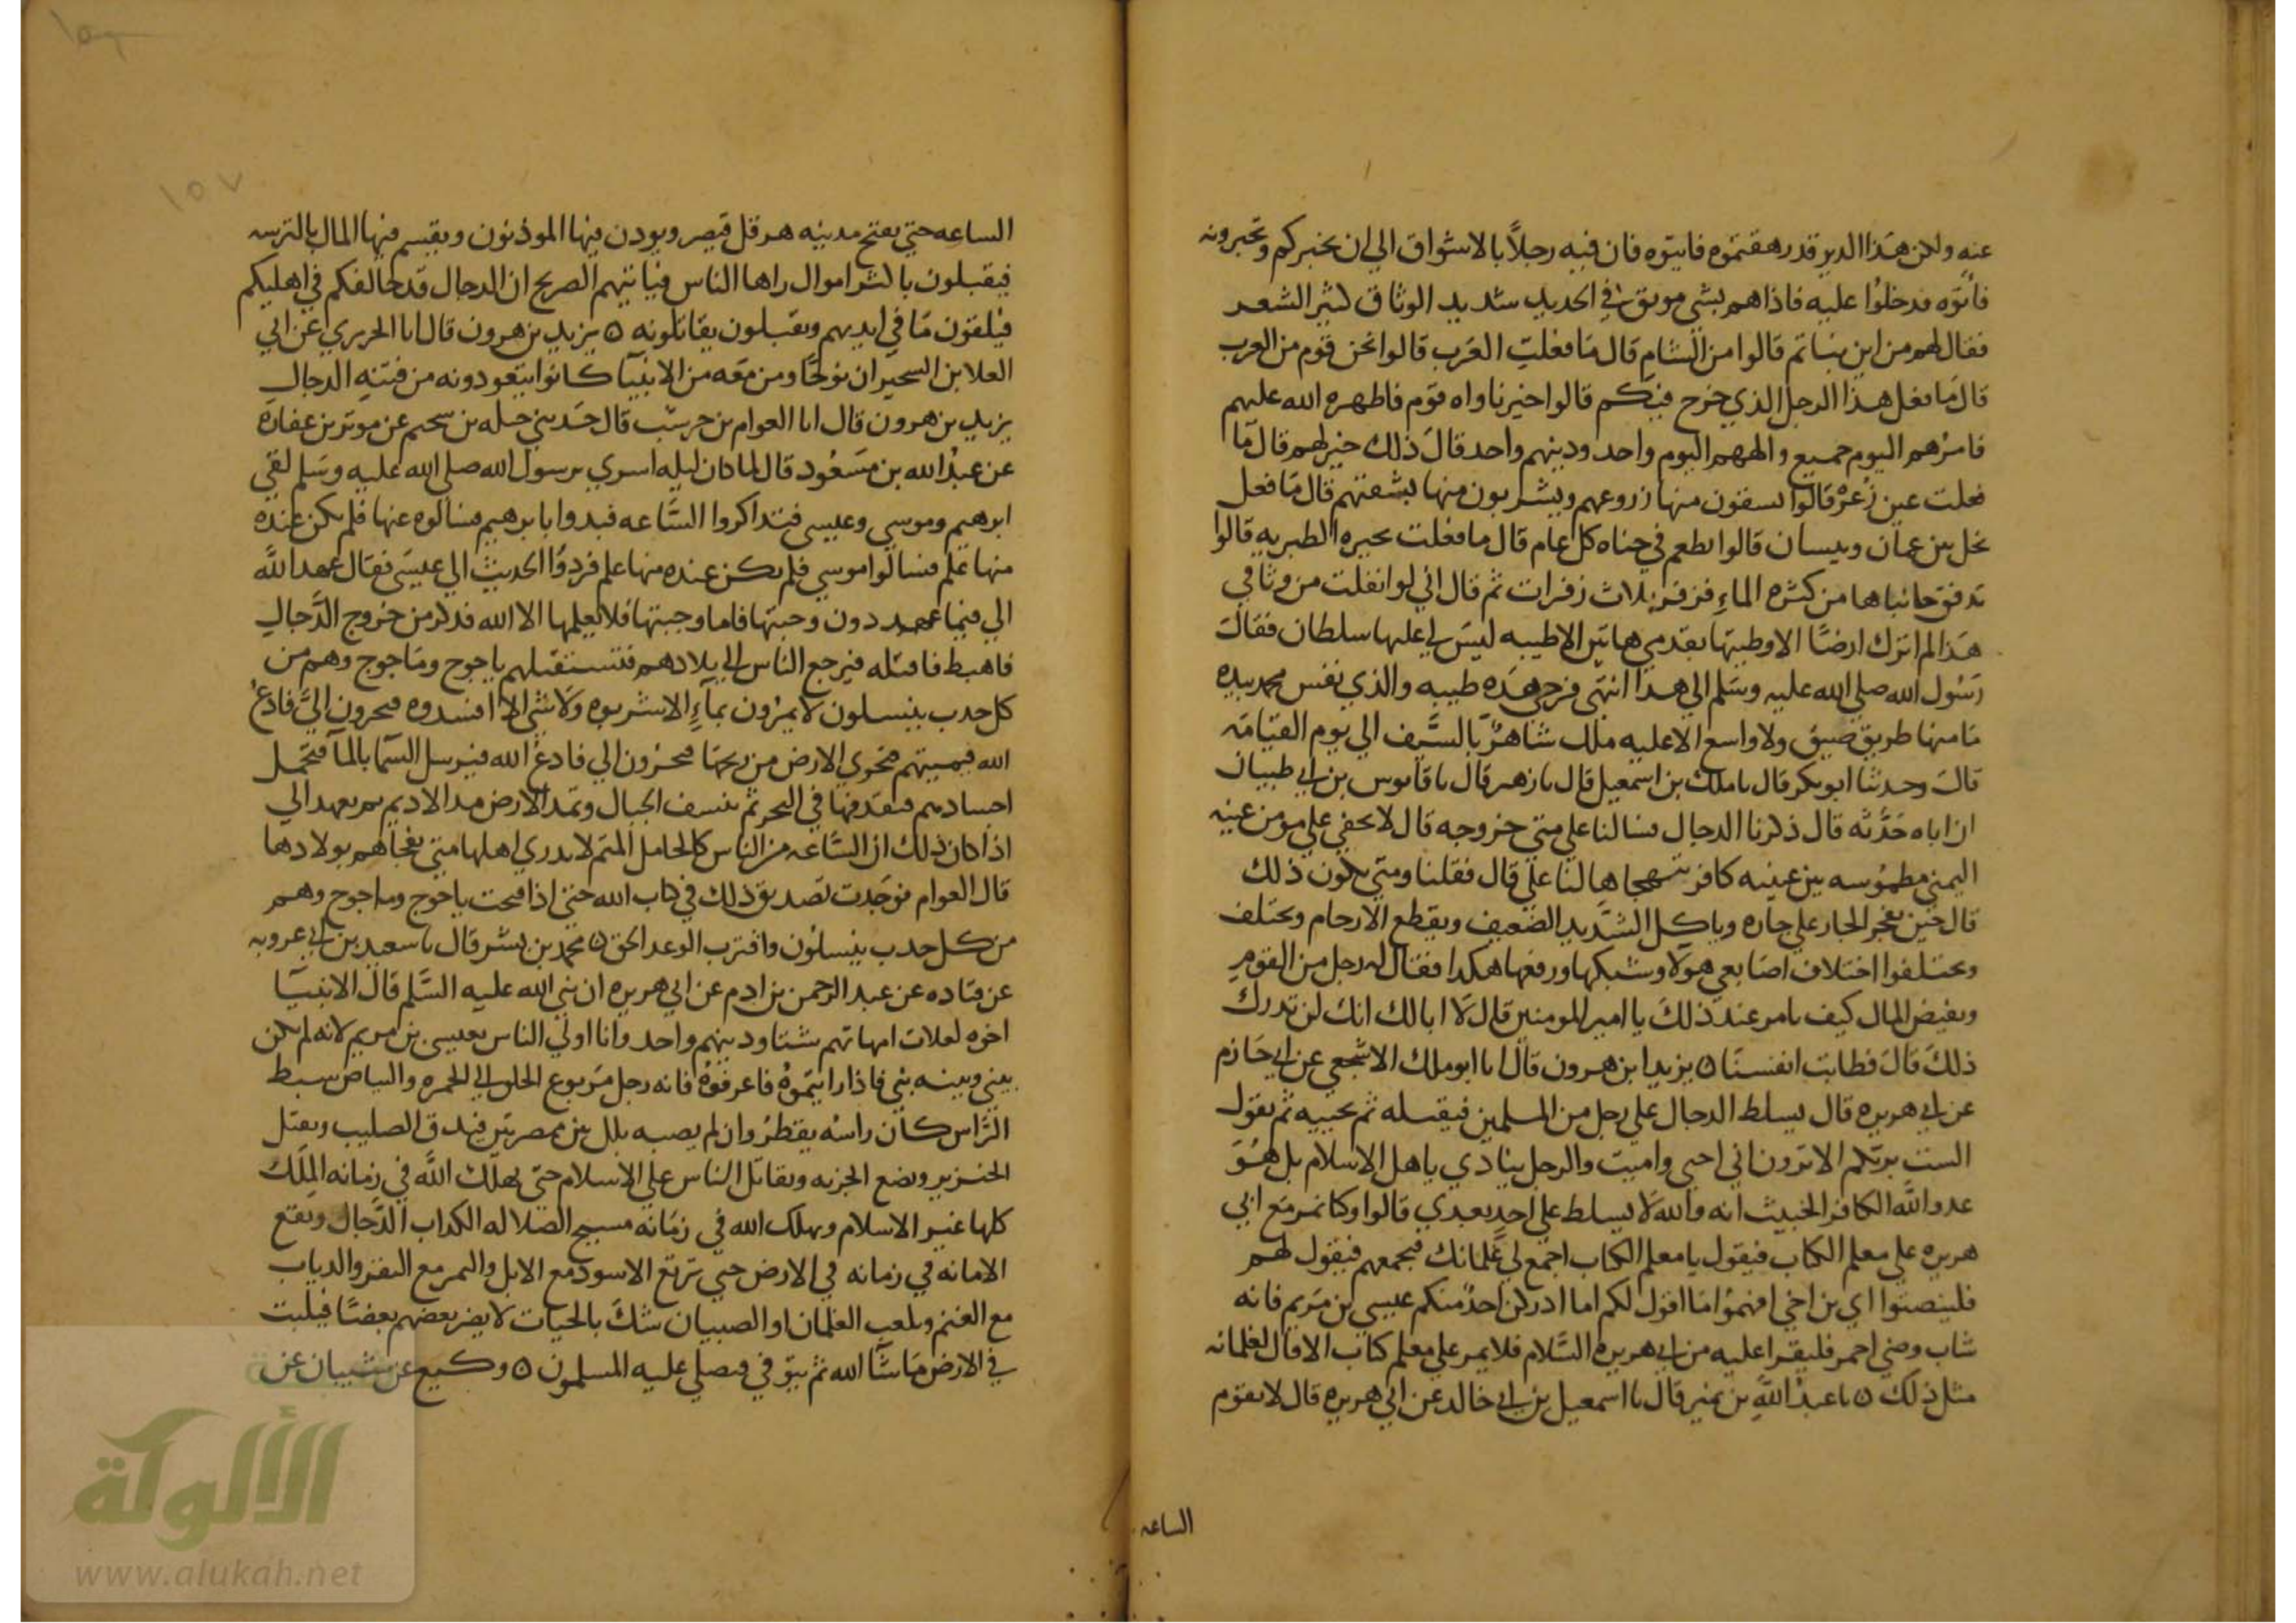 عنه ولكن هذا الدير قد رهقتموه فاتيتوه فان فيه رجلاً بالاشواق الي ان يخبركم وتخبرونه
فاتوه فدخلوا عليه فاذا هم بشي موثق في الحديد شديد الوثاق كثير الشعر
فقال لهم من اين نباتم قالوا من الشام قال ما فعلت العرب قالوا نحن قوم من العرب
قال ما فعل هذا الرجل الذي خرج فيكم قالوا خيرا ناواه قوم فاظهره الله عليهم
فامرهم اليوم جميع والههم اليوم واحد ودينهم واحد قال ذلك خير لهم قال ما
فعلت عين زغر قالوا يسقون منها زروعهم ويشربون منها بشفتهم قال ما فعل
نخل بين عمان وبيسان قالوا يطعم في جناه كل عام قال ما فعلت بحيره الطبريه قالوا
تدفق جانباها من كثره الماء فزفر ثلاث زفرات ثم قال اني لو انفلت من وثاقي
هذا لم اترك ارضًا الا وطيتها بقدمي هاتين الا طيبه ليس لي عليها سلطان فقال
رسول الله صلي الله عليه وسلم الي هذا انتهى فرحي هذه طيبه والذي نفس محمد بيده
ما منها طريق ضيق ولا واسع الا عليه ملك شاهرٌ بالسيف الي يوم القيامه
قال وحدثنا ابو بكر قال نا ملك بن اسمعيل قال نا زهير قال نا قابوس بن ابي ظبيان
ان اباه حدثه قال ذكرنا الدجال فسالنا علي متي خروجه قال لا يخفي علي مومن عينه
اليمني مطموسه بين عينيه كافر يتهجاها لنا علي قال فقلنا ومتي يكون ذلك
قال حين يفخر الجار علي جاره وياكل الشديد الضعيف ويقطع الارحام ويختلف
ويختلفوا اختلاف اصابعي هولا وشبكها ورفعها هكذا فقال له رجل من القوم
ويفيض المال كيف تامر عند ذلك يا امير المومنين قال لا ابا لك انك لن تدرك
ذلك قال فطابت انفسنا ۞ يزيد ابن هرون قال انا ابو ملك الاشجعي عن ابي حازم
عن ابي هريره قال يسلط الدجال علي رجل من المسلمين فيقتله ثم يحييه ثم يقول
الست بربكم الا ترون اني احيي واميت والرجل ينادي ياهل الاسلام بل هو
عدو الله الكافر الخبيث انه والله لا يسلط علي احد بعدي قالوا وكنا نمر مع ابي
هريره علي معلم الكتاب فيقول يا معلم الكتاب اجمع لي غلمانك فيجمعهم فيقول لهم
فلينصتوا اي بن اخي افهموا ما اقول لكم اما ادركن احدٌ منكم عيسي بن مريم فانه
شاب وضي احمر فليقرا عليه من ابي هريره السلام فلا يمر علي معلم كتاب الا قال لغلمانه
مثل ذلك ۞ نا عبد الله بن نمير قال نا اسمعيل بن ابي خالد عن ابي هريره قال لا تقوم
الساعه
الساعه حتي يفتح مدينه هرقل قيصر ويوذن فيها الموذنون ويقسم فيها المال بالترسه
فيقبلون باكثر اموال راها الناس فياتيهم الصريخ ان الدجال قد خالفكم في اهليكم
فيلقون ما في ايديهم ويقبلون يقاتلونه ۞ يزيد بن هرون قال انا الجريري عن ابي
العلا بن الشخير ان نوحًا ومن معه من الانبيا كانوا يتعوذونه من فتنه الدجال
يزيد بن هرون قال انا العوام بن حوشب قال حدثني جبله بن سحيم عن موثر بن عفازه
عن عبد الله بن مسعود قال لما كان ليله اسري برسول الله صلي الله عليه وسلم لقي
ابرهيم وموسي وعيسي فتذاكروا الساعه فبدوا بابرهيم فسالوه عنها فلم يكن عنده
منها علم فسالوا موسي فلم يكن عنده منها علم فردوا الحديث الي عيسي فقال عهد الله
الي فيما عهد دون وجبتها فاما وجبتها فلا يعلمها الا الله فذكر من خروج الدجال
فاهبط فاقتله فيرجع الناس الي بلادهم فتستقبلهم ياجوج وماجوج وهم من
كل حدب ينسلون لا يمرون بماءٍ الا شربوه ولا شي الا افسدوه فيجرون الي فادع
الله فيميتهم فتجوي الارض من ريحها فيجرون الي فادع الله فيرسل السما بالما فتحمل
اجسادهم فيقذفها في البحر ثم ينسف الجبال وتمد الارض مد الاديم ثم يعهد الي
اذا كان ذلك ان الساعه من الناس كالحامل المتم لا يدري اهلها متي تفجاهم بولادها
قال العوام فوجدت تصديق ذلك في كتاب الله حتي اذا فتحت ياجوج وماجوج وهم
من كل حدب ينسلون واقترب الوعد الحق ۞ محمد بن بشر قال نا سعيد بن ابي عروبه
عن قتاده عن عبد الرحمن بن ادم عن ابي هريره ان نبي الله عليه السلم قال الانبيا
اخوه لعلات امهاتهم شتا ودينهم واحد وانا اولي الناس بعيسي بن مريم لانه لم يكن
بيني وبينه نبي فاذا رايتموه فاعرفوه فانه رجل مربوع الخلق الي الحمره والبياض سبط
الراس كان راسه يقطر وان لم يصبه بلل بين ممصرتين فيدق الصليب ويقتل
الخنزير ويضع الجزيه ويقاتل الناس علي الاسلام حتي يهلك الله في زمانه الملك
كلها غير الاسلام ويهلك الله في زمانه مسيح الضلاله الكداب الدجال وتقع
الامانه في زمانه في الارض حتي ترتع الاسود مع الابل والنمر مع البقر والدياب
مع الغنم ويلعب الغلمان او الصبيان شك بالحيات لا يضر بعضهم بعضًا فيلبث
في الارض ما شا الله ثم يتوفي فيصلي عليه المسلمون ۞ وكيع عن شيبان عن
١٥٧
الألوكة
www.alukah.net